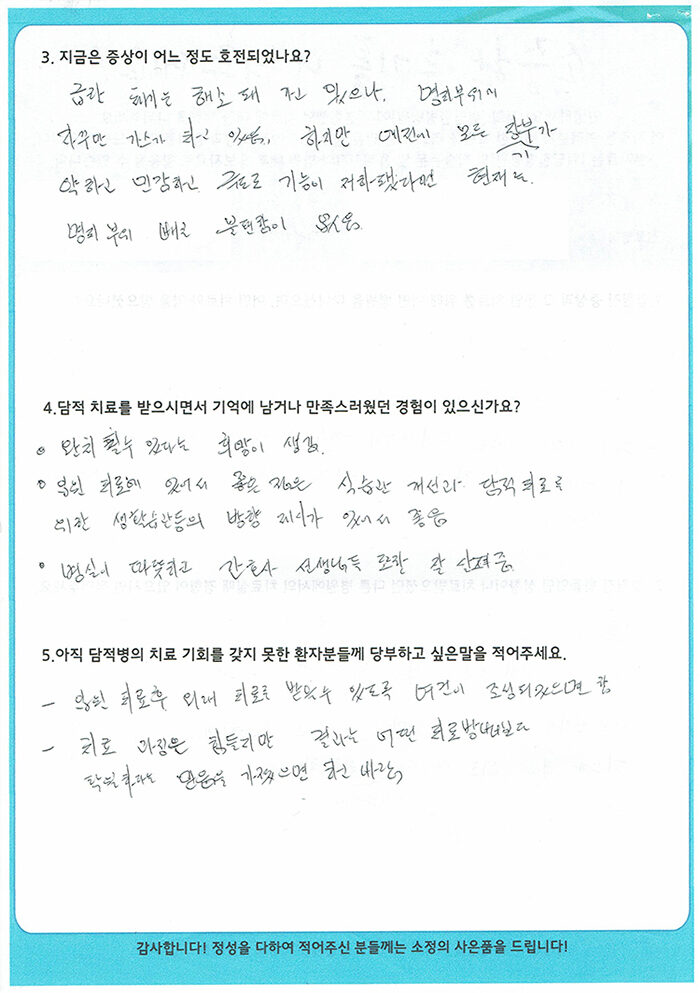 3. 지금은 증상이 어느 정도 호전되었나요?
급한 회기는 해소 돼 지고 있으나, 명치부위에
자꾸만 가스가 차고 있음, 하지만 예전에 모든 장부가
기
약하고 민감하고 극도로 기능이 저하됐다면 현재는
명치 부위 빼고 불편함이 없음.
4.담적 치료를 받으시면서 기억에 남거나 만족스러웠던 경험이 있으신가요?
• 완치 될수 있다는 희망이 생김.
• 입원 치료에 있어서 좋은 점은 식습관 개선과 담적치료를
위한 생활습관등의 방향 제시가 있어서 좋음
• 병실이 따뜻하고 간호사 선생님들 또한 잘 살펴줌.
5.아직 담적병의 치료 기회를 갖지 못한 환자분들께 당부하고 싶은말을 적어주세요.
- 입원 치료후 외래 치료를 받을수 있도록 여건이 조성되었으면 함
- 치료 과정은 힘들지만 결과는 어떤 치료방법보다
확실하다는 믿음을 가졌으면 하고 바람.
감사합니다! 정성을 다하여 적어주신 분들께는 소정의 사은품을 드립니다!